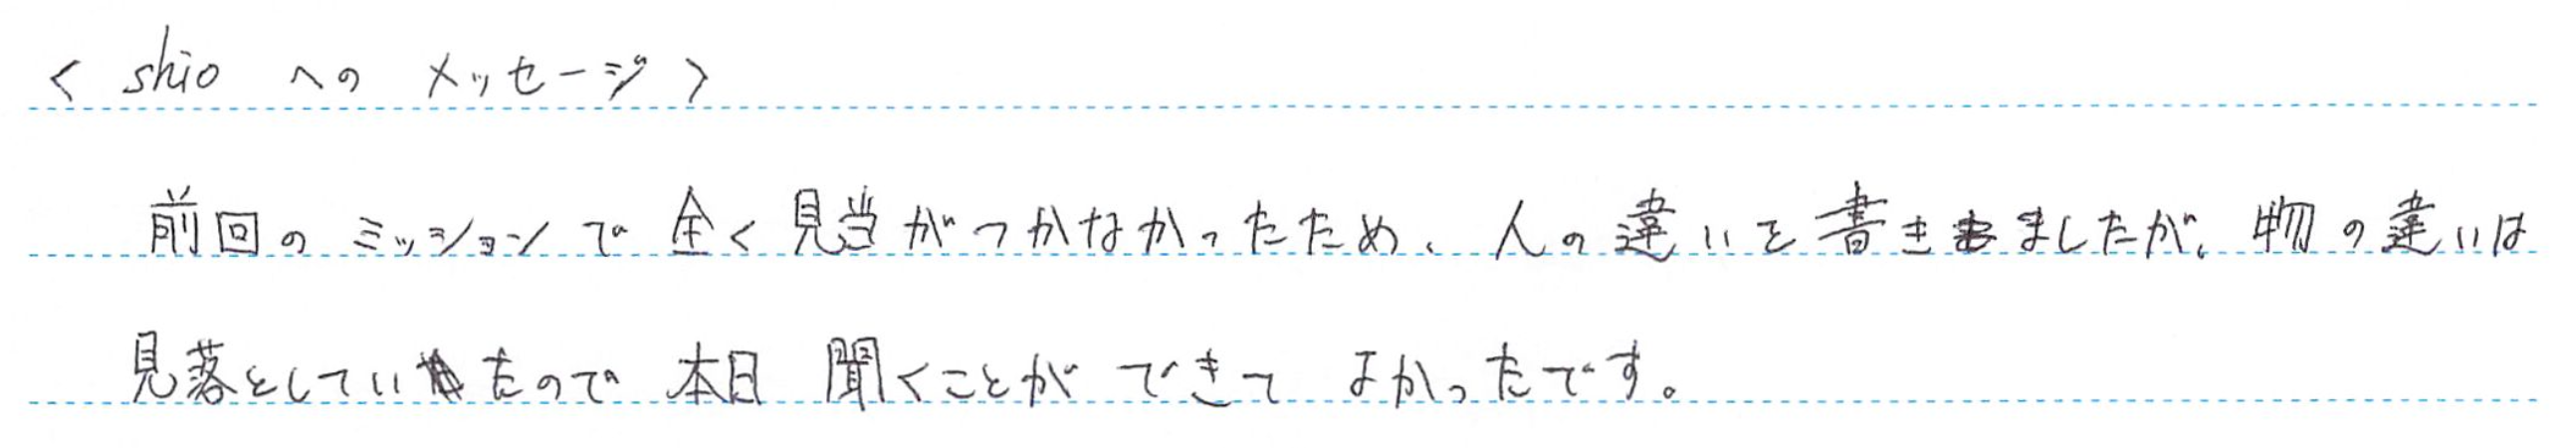 < shio への メッセージ >
前回の ミッションで 全く見当がつかなかったため、人の違いを書きましたが、物の違いは
見落としていたので 本日 聞くことが できて よかったです。